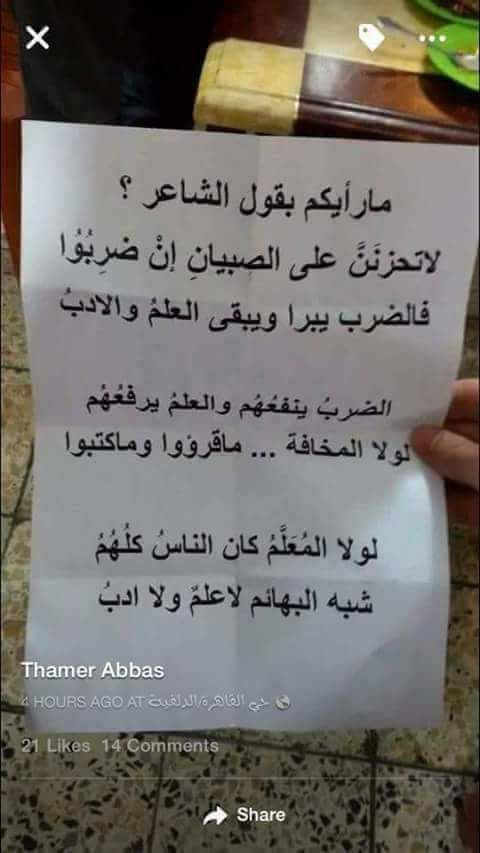 مارأيكم بقول الشاعر ؟
لاتحزنَنَّ على الصبيانِ إنْ ضرِبُوُا
فالضرب يبرا ويبقى العلمُ والادبُ
الضربُ ينفعُهُم والعلمُ يرفعُهُم
لولا المخافة ... ماقرؤوا وماكتبوا
لولا المُعَلَّمُ كان الناسُ كلُهُمُ
شبه البهائم لاعلمٌ ولا ادبُ
Thamer Abbas
4 HOURS AGO AT حي القاهرة/
21 Likes 14 Comments
Share